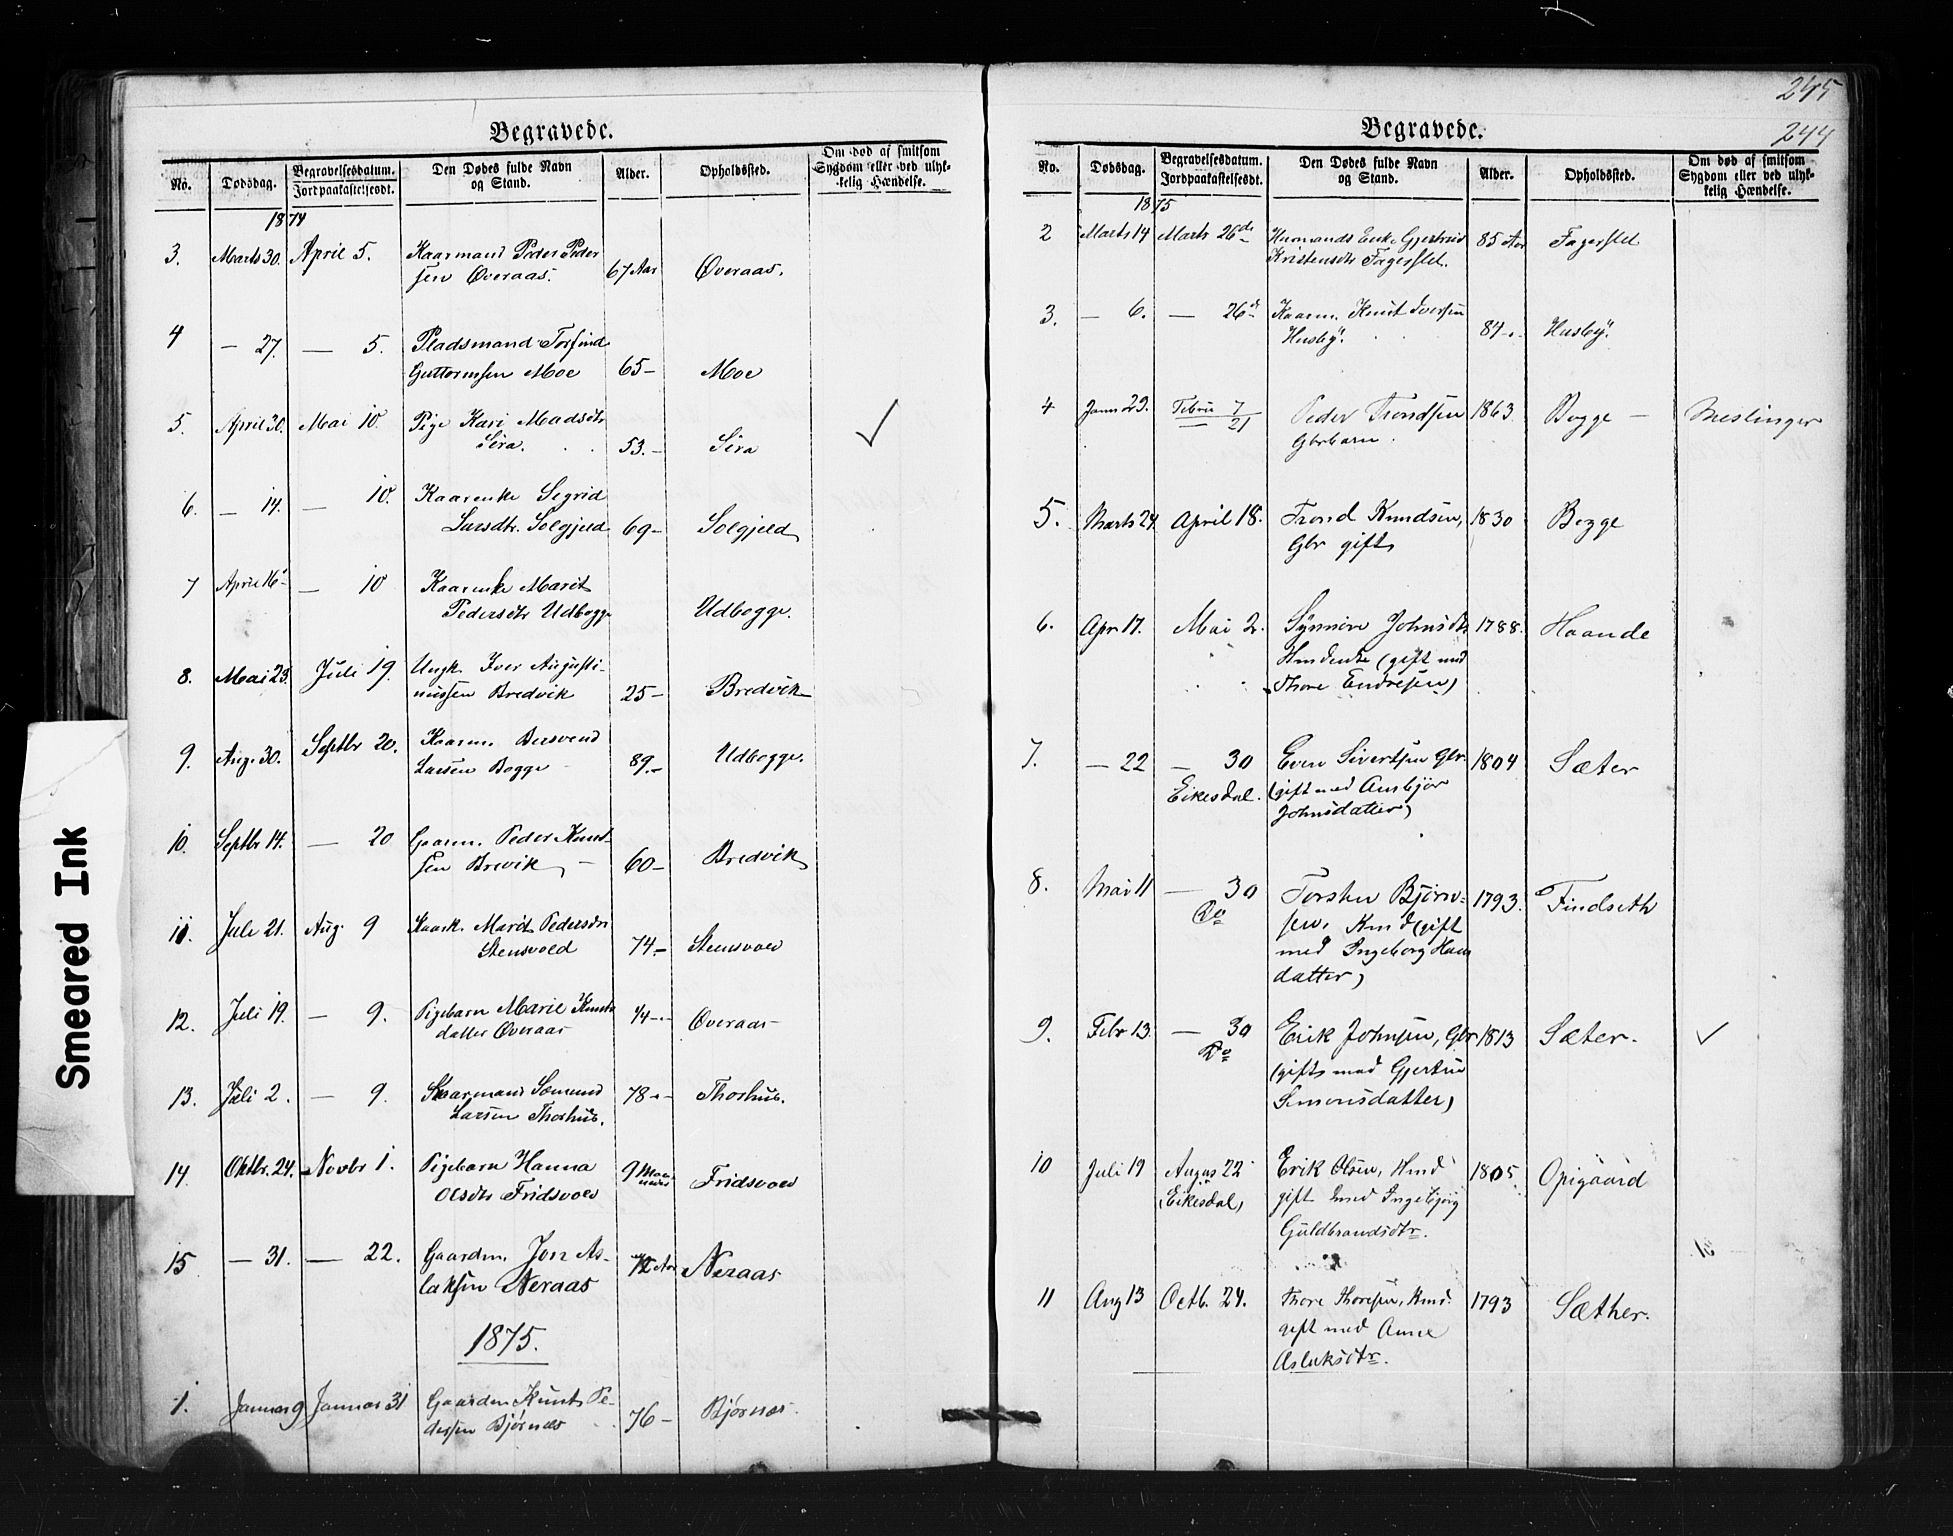 Begravede.
No. Dødsdag. Begravelsesdatum. Jordpaakastelsesdt. Den Dødes fulde Navn og Stand. Alder. Opholdssted. Om død af smitsom Sygdom eller ved ulyk-kelig Hændelse.
1874
3. Marts 30. April 5. Kaarmand Peder Peder
sen Øveraas. 67 Aar Øveraas.
4 — 27. — 5. Pladsmand Torfind
Guttormsen Moe 65 — Moe
5. April 30. Mai 10. Pige Kari Madsdtr
Sira. 53. — Sira
6. — 14. — 10. Kaarenke Segrid
Larsdtr. Solgjeld 69 — Solgjeld
7 April 16 — 10 Kaarenke Marit
Pedersdtr Udbogge Udbogge.
8. Mai 23. Juli 19. Ungk. Iver Augusti-
nussen Bredvik 25 — Bredvik
9. Aug. 30. Septbr 20. Kaarm. Bersvend
Larsen Bogge 89. — Udbogge.
10. Septbr 14. — 20 Gaarm. Peder Knud-
sen Brevik 60 — Bredvik
11. Juli 21. Aug. 9 Kaark. Marit Pedersdtr
Stensvold 74. — Steensvold
12. Juli 19. — 9. Pigebarn Marie Knuts
datter Øveraas Øveraas
13. Juli 2. — 9. Kaarmand Sæmund
Larsen Thorhus. 78 — Thorhus.
14. Oktbr. 24. Novbr 1. Pigebarn Hanna
Olsdtr Fridsvold 9 Maaneder Fridsvold
15 — 31. — 22. Gaardm. Jon As-
laksen Neraas 72 Aar Neraas
1875.
1. Januar 9 Januar 31 Gaardm Knut Pe-
dersen Bjørnæs 76 — Bjørnæs
245
244
Begravede.
No. Dødsdag. Begravelsesdatum. Jordpaakastelsesdt. Den Dødes fulde Navn og Stand. Alder. Opholdssted. Om død af smitsom Sygdom eller ved ulyk-kelig Hændelse.
1875
2 Marts 14 Marts 26de Husmands Enke Gjertrud
Kristensdtr Fagerslet. 85 Aar Fagerslet
3. — 6. — 26d Kaarm. Knut Iversen
Husby. 84 — Husby.
4 Januar 23. Februar 7/21 Peder Trondsen
Gbrbarn. 1863 Bogge — Meslinger
5. Marts 24. April 18. Trond Knudsen, 1830 Bogge
Gbr gift
6. Apr. 17. Mai 2. Synnøve Johnsdtr 1788. Haande
Hmdenke (gift med
Thore Endresen)
7. — 22 — 30 Even Sivertsen Gbr. 1804 Sæter
Eikesdal. (gift med Ansbjør
Johnsdatter)
8. Mai 11 — 30 Torsten Bjørn- 1793. Findseth
Do sen, Hmd (gift
med Ingeborg Hans
datter)
9. Febr 13. — 30 Erik Johnsen, Gbr 1813 Sæter.
Do (gift med Gjertrud
Simonsdatter)
10 Juli 19 August 22 Erik Olsen, Hmd 1805. Opigaard
(Eikesdal) gift med Ingebjørg
Guldbrandsdtr.
11 Aug 13 Octb. 24. Thore Thoresen, Hmd. 1793 Sæther.
gift med Anne
Aslaksdtr.
Smeared Ink